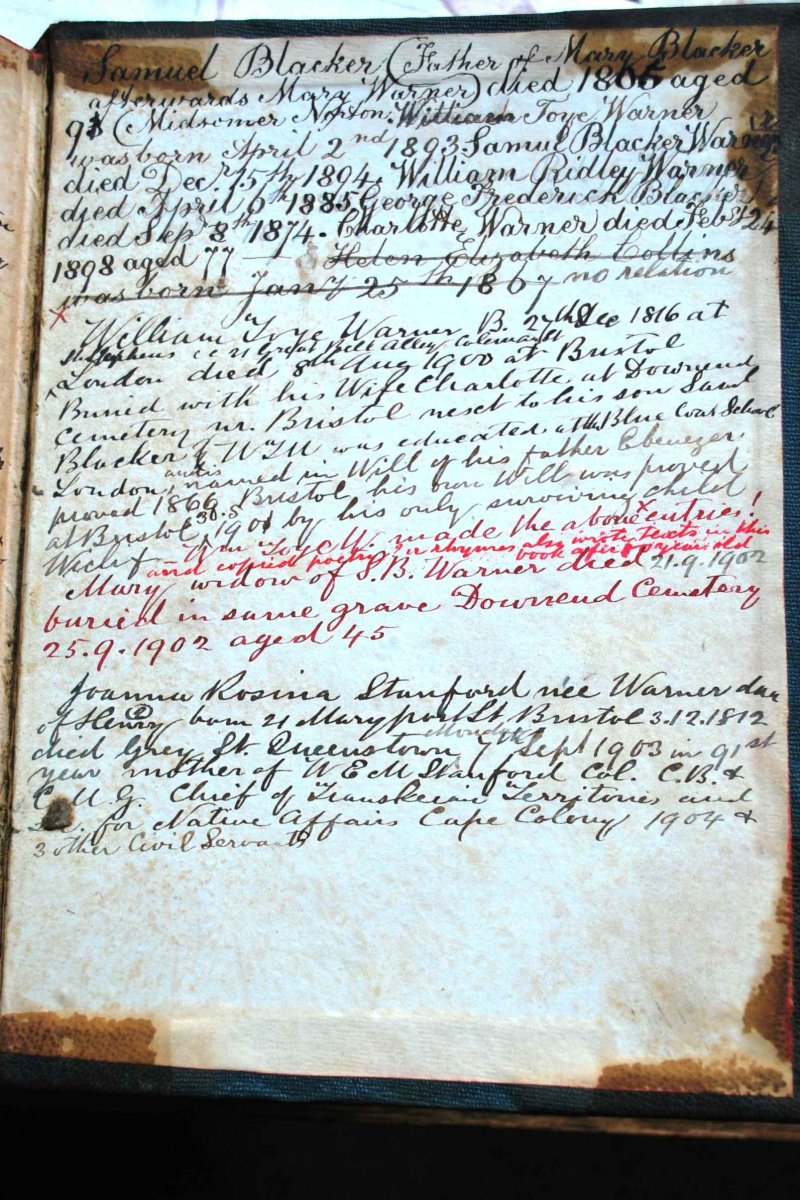 Samuel Blacker (Father of Mary Blacker
afterwards Mary Warner) died 1865 aged
91 (Midsomer Norton. William Toye Warner
was born April 2nd 1893 Samuel Blacker Warner
died Decr. 15th 1894. William Ridley Warner
died April 6th 1885 George Frederick Blacker
died Sepr 8th 1874. Charlotte Warner died Feby 24
1898 aged 77 — Helen Elizabeth Collins
was born Jany 25th 1867 no relation
x
William Toye Warner B. 27th Dec 1816 at
St Stephens 21 Great Bell Alley Coleman St
London died 8th Aug 1900 at Bristol
Buried with his Wife Charlotte at Downend
Cemetery nr. Bristol next to his son Saml
Blacker of WTW was educated at the Blue Coat School
London, and is named in Will of his father Ebenezer
proved 1866 Bristol, his own Will was proved
at Bristol 30.5.1901 by his only surviving child
Wm Toye W. made the above entries!
and copied poetry or rhymes also wrote texts in this
book after 80 years old
Mary widow of S.B. Warner died 21.9.1902
buried in same grave Downend Cemetery
25.9.1902 aged 45
Joanna Rosina Stanford née Warner dau
of Henry born 21 Maryport St, Bristol 3.12.1812
died Grey St. Queenstown Monday 7th Sept 1903 in 91st
year mother of W E M Stanford Col. C.B. &
C.M.G. Chief of Transkeian Territories and
for Native Affairs Cape Colony 1904 &
3 other Civil Servants